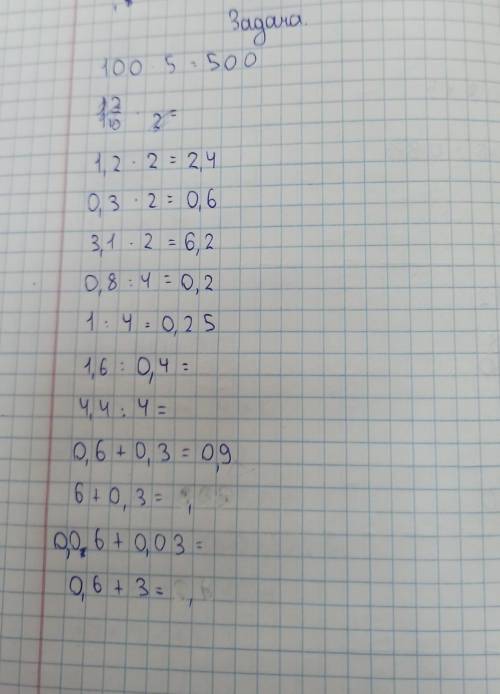 Задача.
100 · 5 = 500
12/10 · 2 =
1,2 · 2 = 2,4
0,3 · 2 = 0,6
3,1 · 2 = 6,2
0,8 : 4 = 0,2
1 : 4 = 0,25
1,6 : 0,4 =
4,4 : 4 =
0,6 + 0,3 = 0,9
6 + 0,3 =
0,0 6 + 0,03 =
0,6 + 3 =